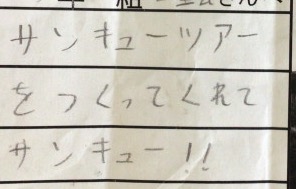 サンキューツアー
をつくってくれて
サンキュー!!